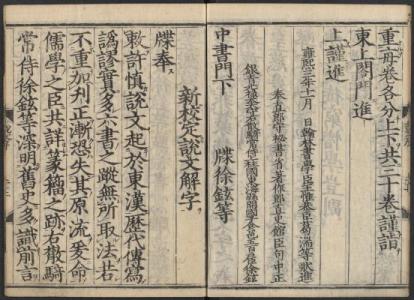 重一十卷各分上下共三十卷謹詣
東上閤門進
上謹進
雍熙三年十一月 日翰林書學臣王惟恭臣葛湍等狀進
奉直郎守秘書省著作郎直史館臣句中正
銀青光祿大夫守右散騎常侍上柱國東海縣開國子食邑五百戶臣徐鉉
中書門下 牒徐鉉等
新校定說文解字
牒奉
敕許慎說文起於東漢歷代傳寫
譌謬實多六書之蹤無所取法若
不重加刊正漸恐失其原流爰命
儒學之臣共詳篆籀之跡右散騎
常侍徐鉉等深明舊史多識前言